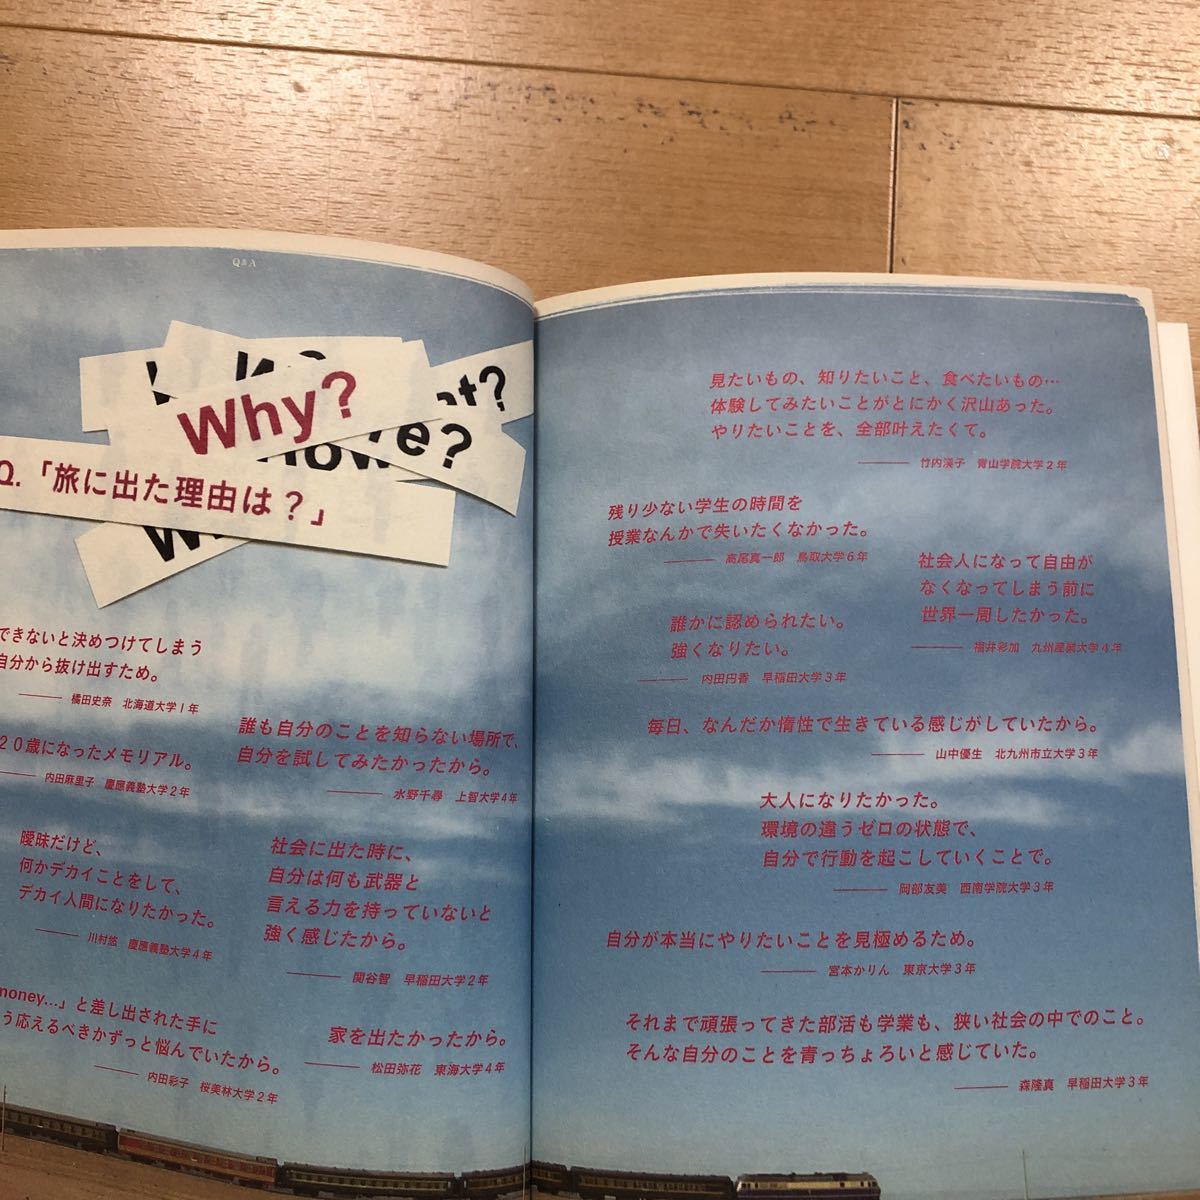 Q&A
Why?
Q.「旅に出た理由は？」
できないと決めつけてしまう
自分から抜け出すため。
橘田史奈 北海道大学1年
20歳になったメモリアル。
内田麻里子 慶應義塾大学2年
誰も自分のことを知らない場所で、
自分を試してみたかったから。
水野千尋 上智大学4年
曖昧だけど、
何かデカイことをして、
デカイ人間になりたかった。
川村悠 慶應義塾大学4年
社会に出た時に、
自分は何も武器と
言える力を持っていないと
強く感じたから。
関谷智 早稲田大学2年
money…」と差し出された手に
う応えるべきかずっと悩んでいたから。
内田彩子 桜美林大学2年
家を出たかったから。
松田弥花 東海大学4年
見たいもの、知りたいこと、食べたいもの…
体験してみたいことがとにかく沢山あった。
やりたいことを、全部叶えたくて。
竹内渓子 青山学院大学2年
残り少ない学生の時間を
授業なんかで失いたくなかった。
高尾真一郎 鳥取大学6年
社会人になって自由が
なくなってしまう前に
世界一周したかった。
福井彩加 九州産業大学4年
誰かに認められたい。
強くなりたい。
内田円香 早稲田大学3年
毎日、なんだか惰性で生きている感じがしていたから。
山中優生 北九州市立大学3年
大人になりたかった。
環境の違うゼロの状態で、
自分で行動を起こしていくことで。
岡部友美 西南学院大学3年
自分が本当にやりたいことを見極めるため。
宮本かりん 東京大学3年
それまで頑張ってきた部活も学業も、狭い社会の中でのこと。
そんな自分のことを青っちょろいと感じていた。
森隆真 早稲田大学3年